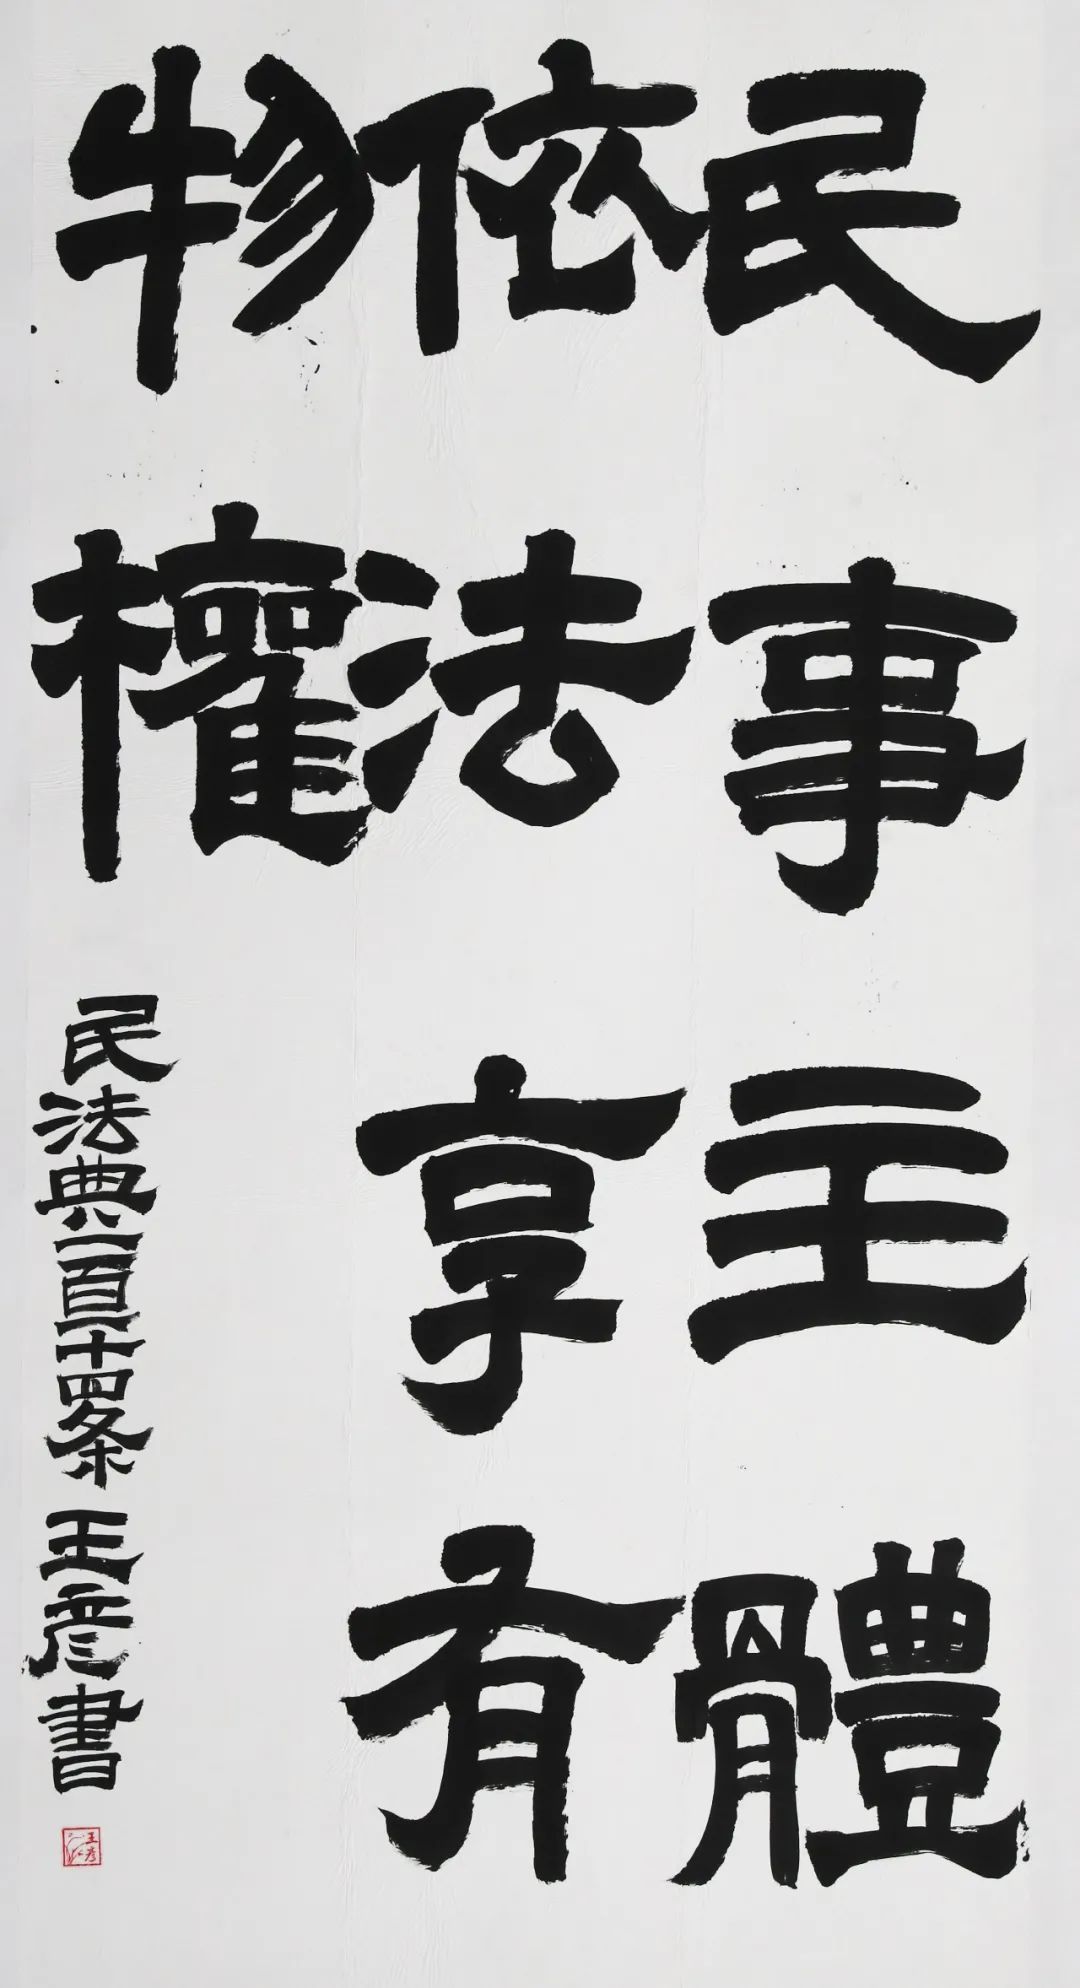 民事主體
依法享有
物權
民法典一百一十四条 王彦書
王彦